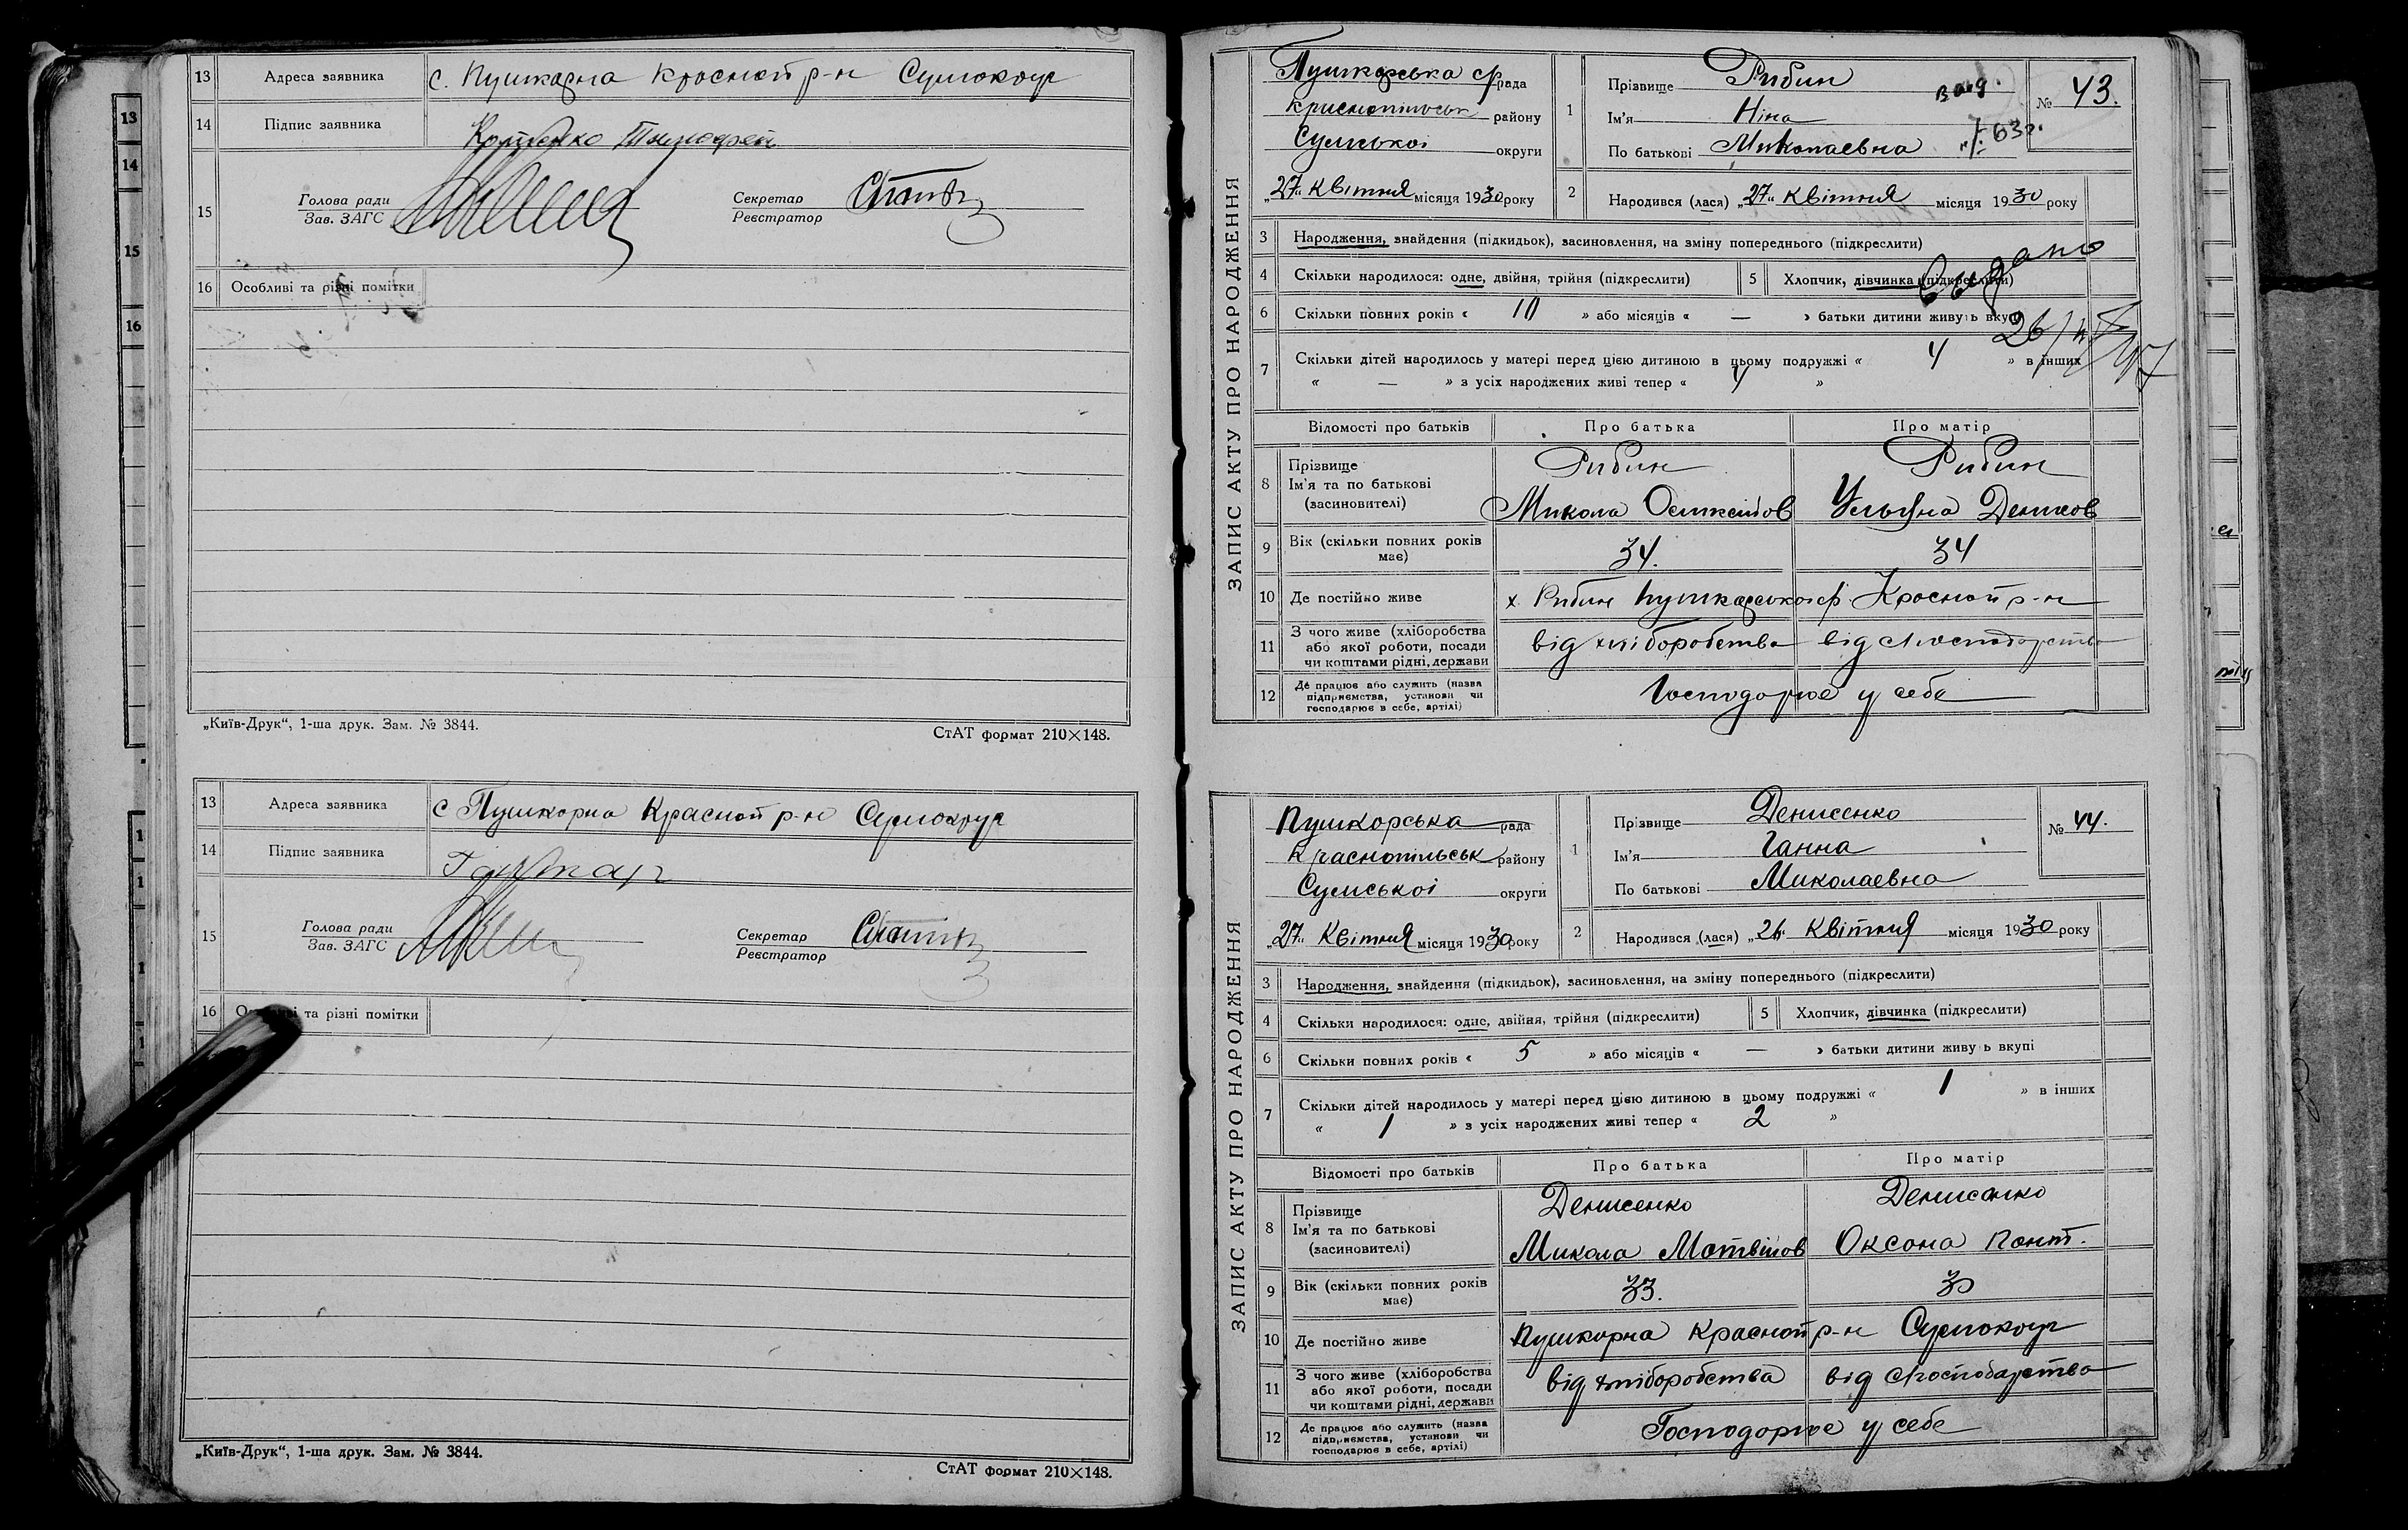 13 Адреса заявника с. Пушкарна Красноп р-н Сумокруг
14 Підпис заявника
15 Голова ради
Зав. ЗАГС
Секретар
Реєстратор
16 Особливі та різні помітки
„Київ-Друк“, 1-ша друк. Зам. № 3844.
СтАТ формат 210×148.
13 Адреса заявника с Пушкарна Красноп р-н Сумокруг
14 Підпис заявника
15 Голова ради
Зав. ЗАГС
Секретар
Реєстратор
16 та різні помітки
„Київ-Друк“, 1-ша друк. Зам. № 3844.
СтАТ формат 210×148.
ЗАПИС АКТУ ПРО НАРОДЖЕННЯ
Пушкарська с/рада
Краснопільськ району
Сумської округи
„27“ Квітня місяця 1930 року
1 Прізвище Рибин
Ім'я Ніна
По батькові Миколаевна
№ 43.
63г.
2 Народився (лася) „27“ Квітня місяця 1930 року
3 Народження, знайдення (підкидьок), засиновлення, на зміну попереднього (підкреслити)
4 Скільки народилося: одне, двійня, трійня (підкреслити) 5 Хлопчик, дівчинка (підкреслити)
Выдано
6 Скільки повних років « 10 » або місяців « — » батьки дитини живуть вкупі
7 Скільки дітей народилось у матері перед цією дитиною в цьому подружжі « 4 » в інших
« — » з усіх народжених живі тепер « 4 »
Відомості про батьків Про батька Про матір
8 Прізвище
Ім'я та по батькові
(засиновителі)
Рибин Рибин
Микола Ульяна Денисов
9 Вік (скільки повних років має) 34. 34
10 Де постійно живе х. Рибин Пушкарської с/р. Красноп р-н
11 З чого живе (хліборобства
або якої роботи, посади
чи коштами рідні, держави
від хліборобства від г осподарства
12 Де працює або служить (назва
підприємства, установи чи
господарює в себе, артілі)
Господарює у себе
ЗАПИС АКТУ ПРО НАРОДЖЕННЯ
Пушкорська рада
Краснопільськ району
Сумської округи
„27“ Квітня місяця 1930 року
1 Прізвище Денисенко
Ім'я Ганна
По батькові Миколаевна
№ 44.
2 Народився (лася) „26“ Квітня місяця 1930 року
3 Народження, знайдення (підкидьок), засиновлення, на зміну попереднього (підкреслити)
4 Скільки народилося: одне, двійня, трійня (підкреслити) 5 Хлопчик, дівчинка (підкреслити)
6 Скільки повних років « 5 » або місяців « — » батьки дитини живуь вкупі
7 Скільки дітей народилось у матері перед цією дитиною в цьому подружжі « 1 » в інших
« 1 » з усіх народжених живі тепер « 2 »
Відомості про батьків Про батька Про матір
8 Прізвище
Ім'я та по батькові
(засиновителі)
Денисенко Денисенко
Микола Матвійов Оксана Пант.
9 Вік (скільки повних років має) 33. 30
10 Де постійно живе Пушкарна Красноп р-н Сумокруг
11 З чого живе (хліборобства
або якої роботи, посади
чи коштами рідні, держави
від хліборобства від господарства
12 Де працює або служить (назва
підприємства, установи чи
господарює в себе, артілі)
Господарює у себе